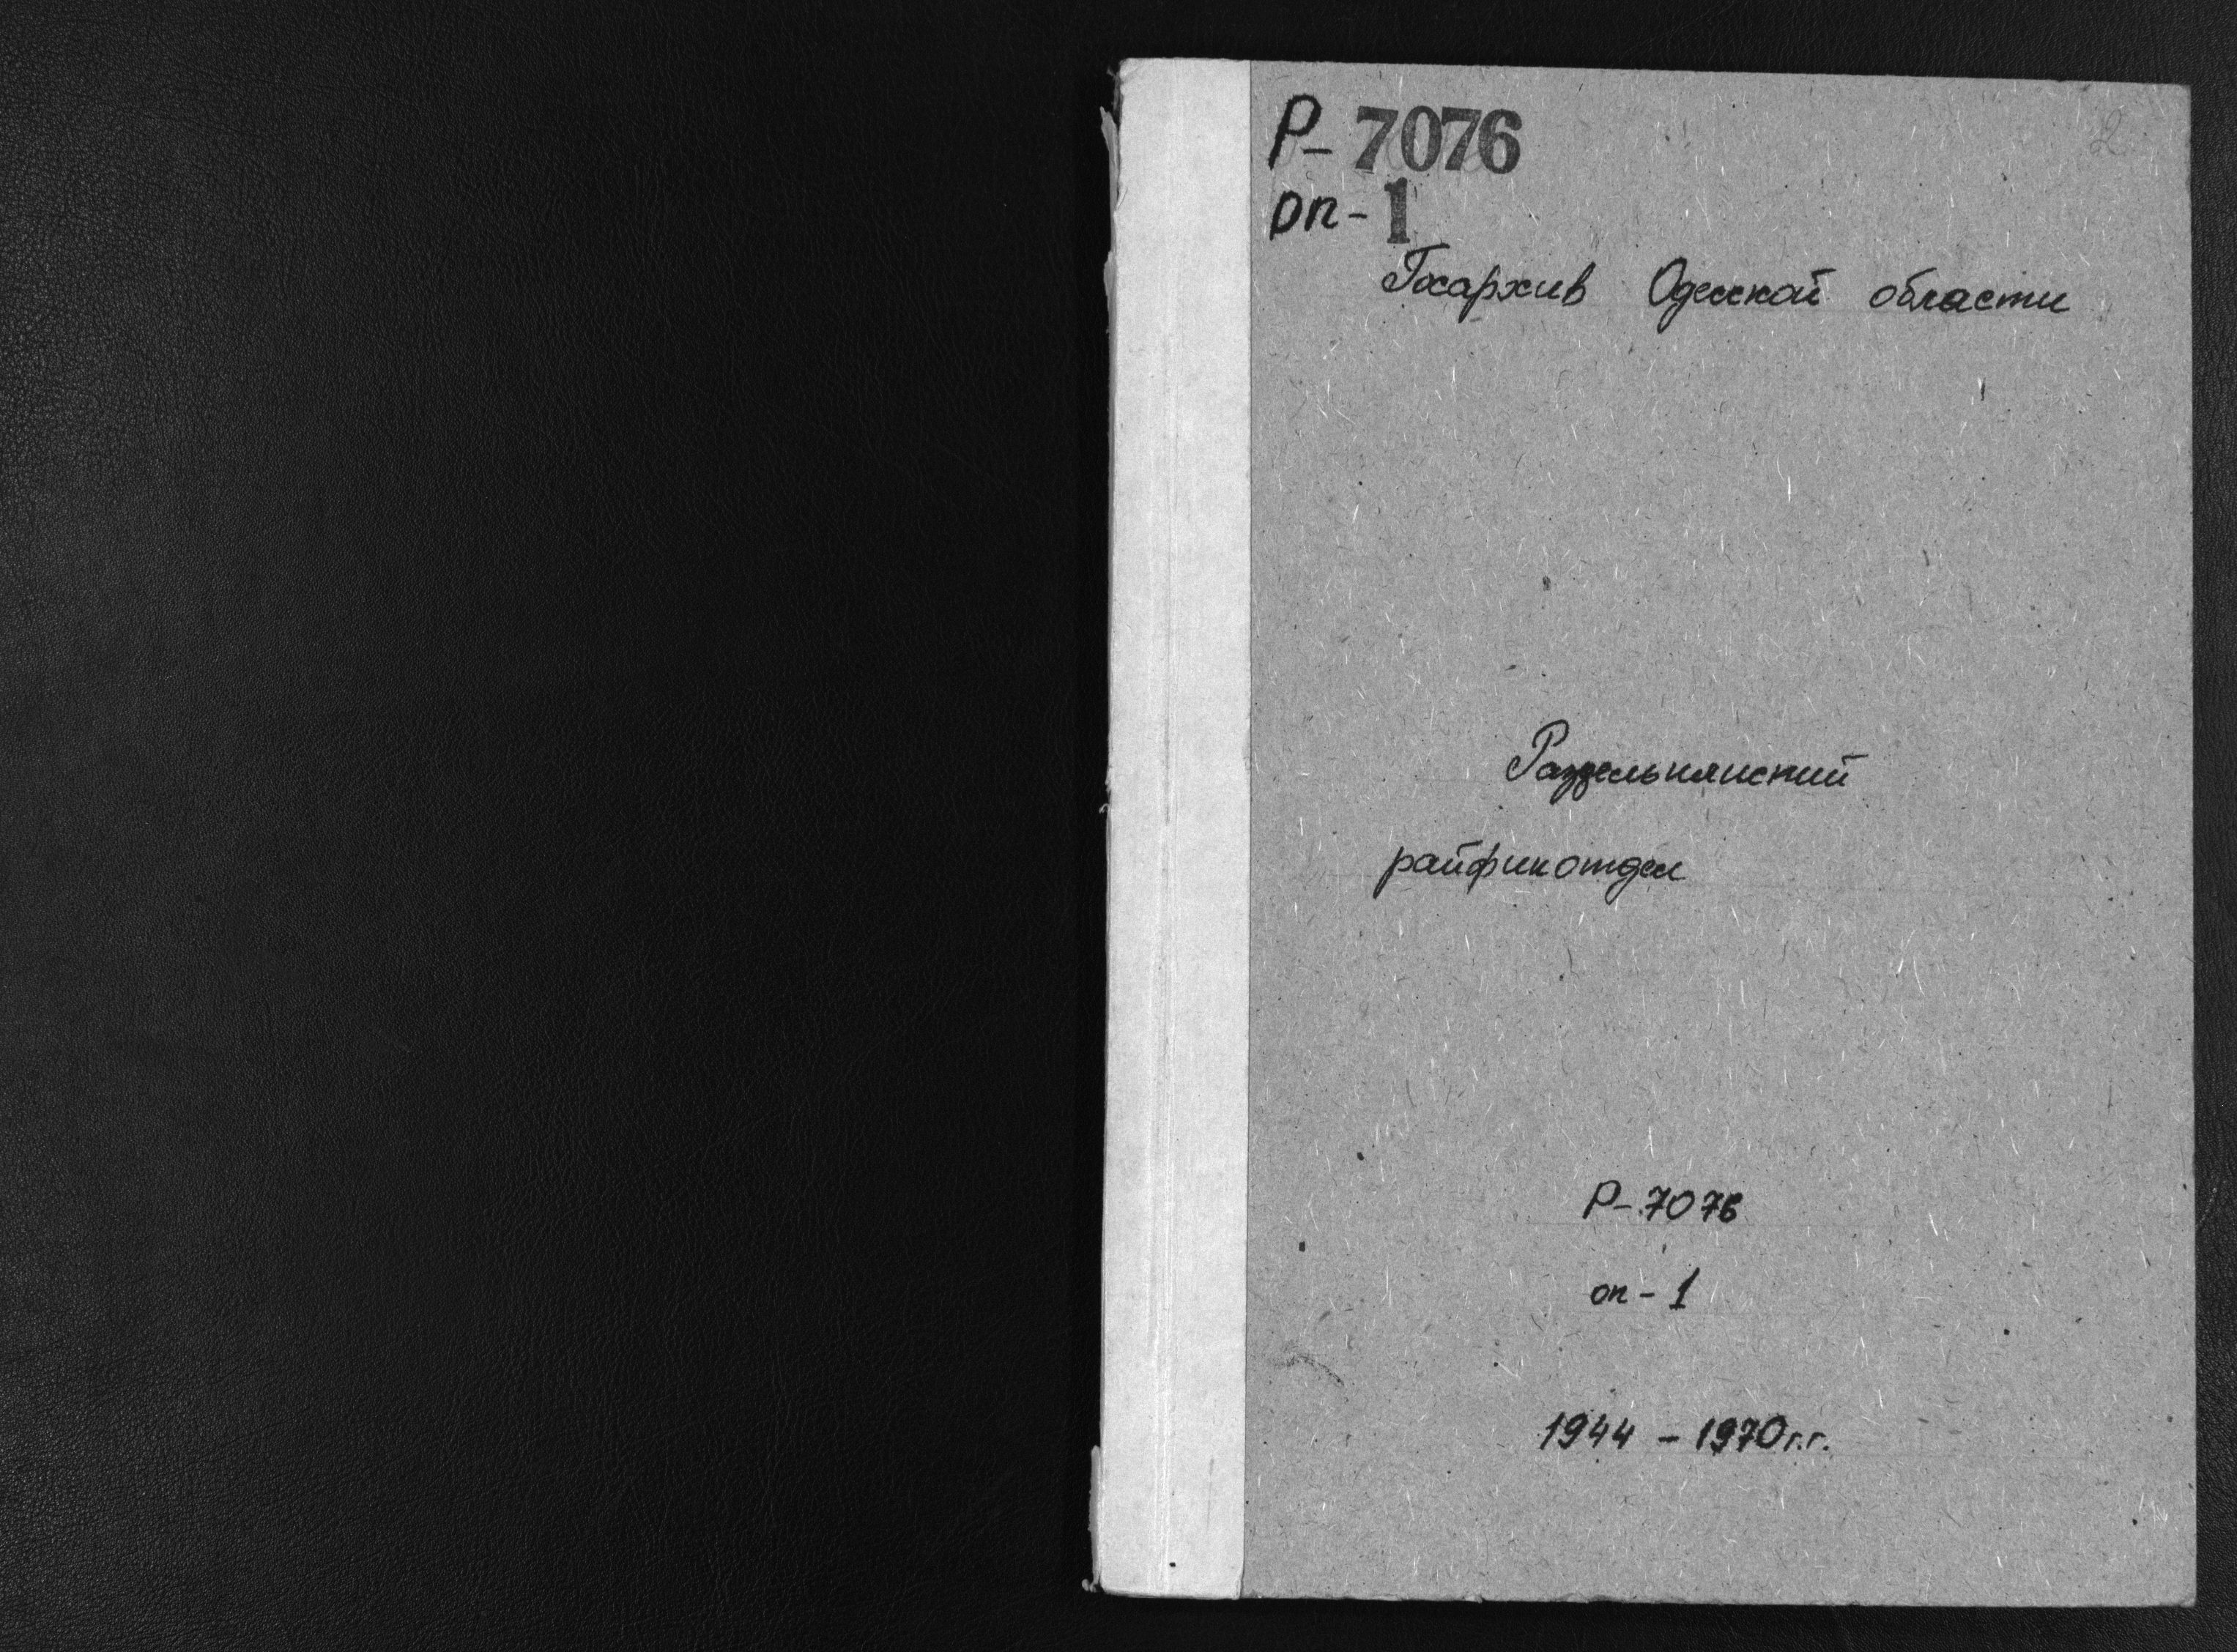 Р-7076
2
оп-1
Госархив Одесской области
Раздельнянский
райфинотдел
Р-7076
оп-1
1944-1970г.г.